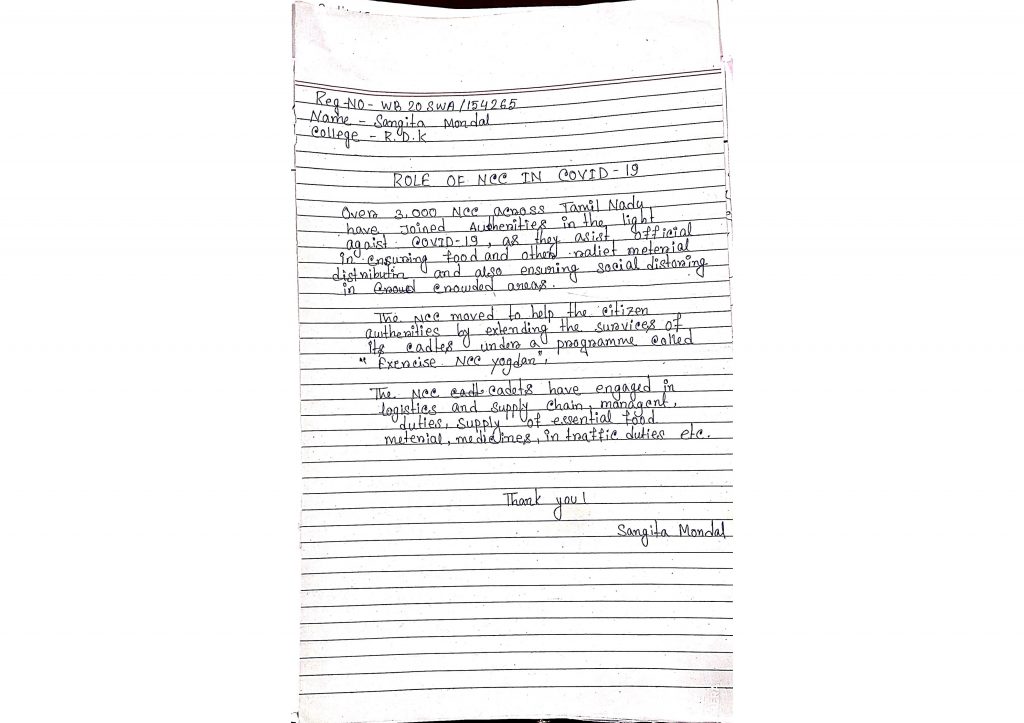 Reg-NO - WB 20 SWA/154265
Name - Sangita Mondal
College - R.D.K
ROLE OF NCC IN COVID-19
Over 3,000 NCC across Tamil Nadu
have Joined Authenities in the light
agaist COVID-19, as they asist official
in ensuring food and other relief meterial
distributin and also ensuring social distoning
in crowded areas.
The NCC moved to help the citizen
authenities by extending the survices of
its cadtes under a programme called
"Exercise NCC yogdan",
The NCC cadets have engaged in
logistics and supply chain, managent,
duties, supply of essential food
meterial, medicines, in traffic duties etc.
Thank you!
Sangita Mondal